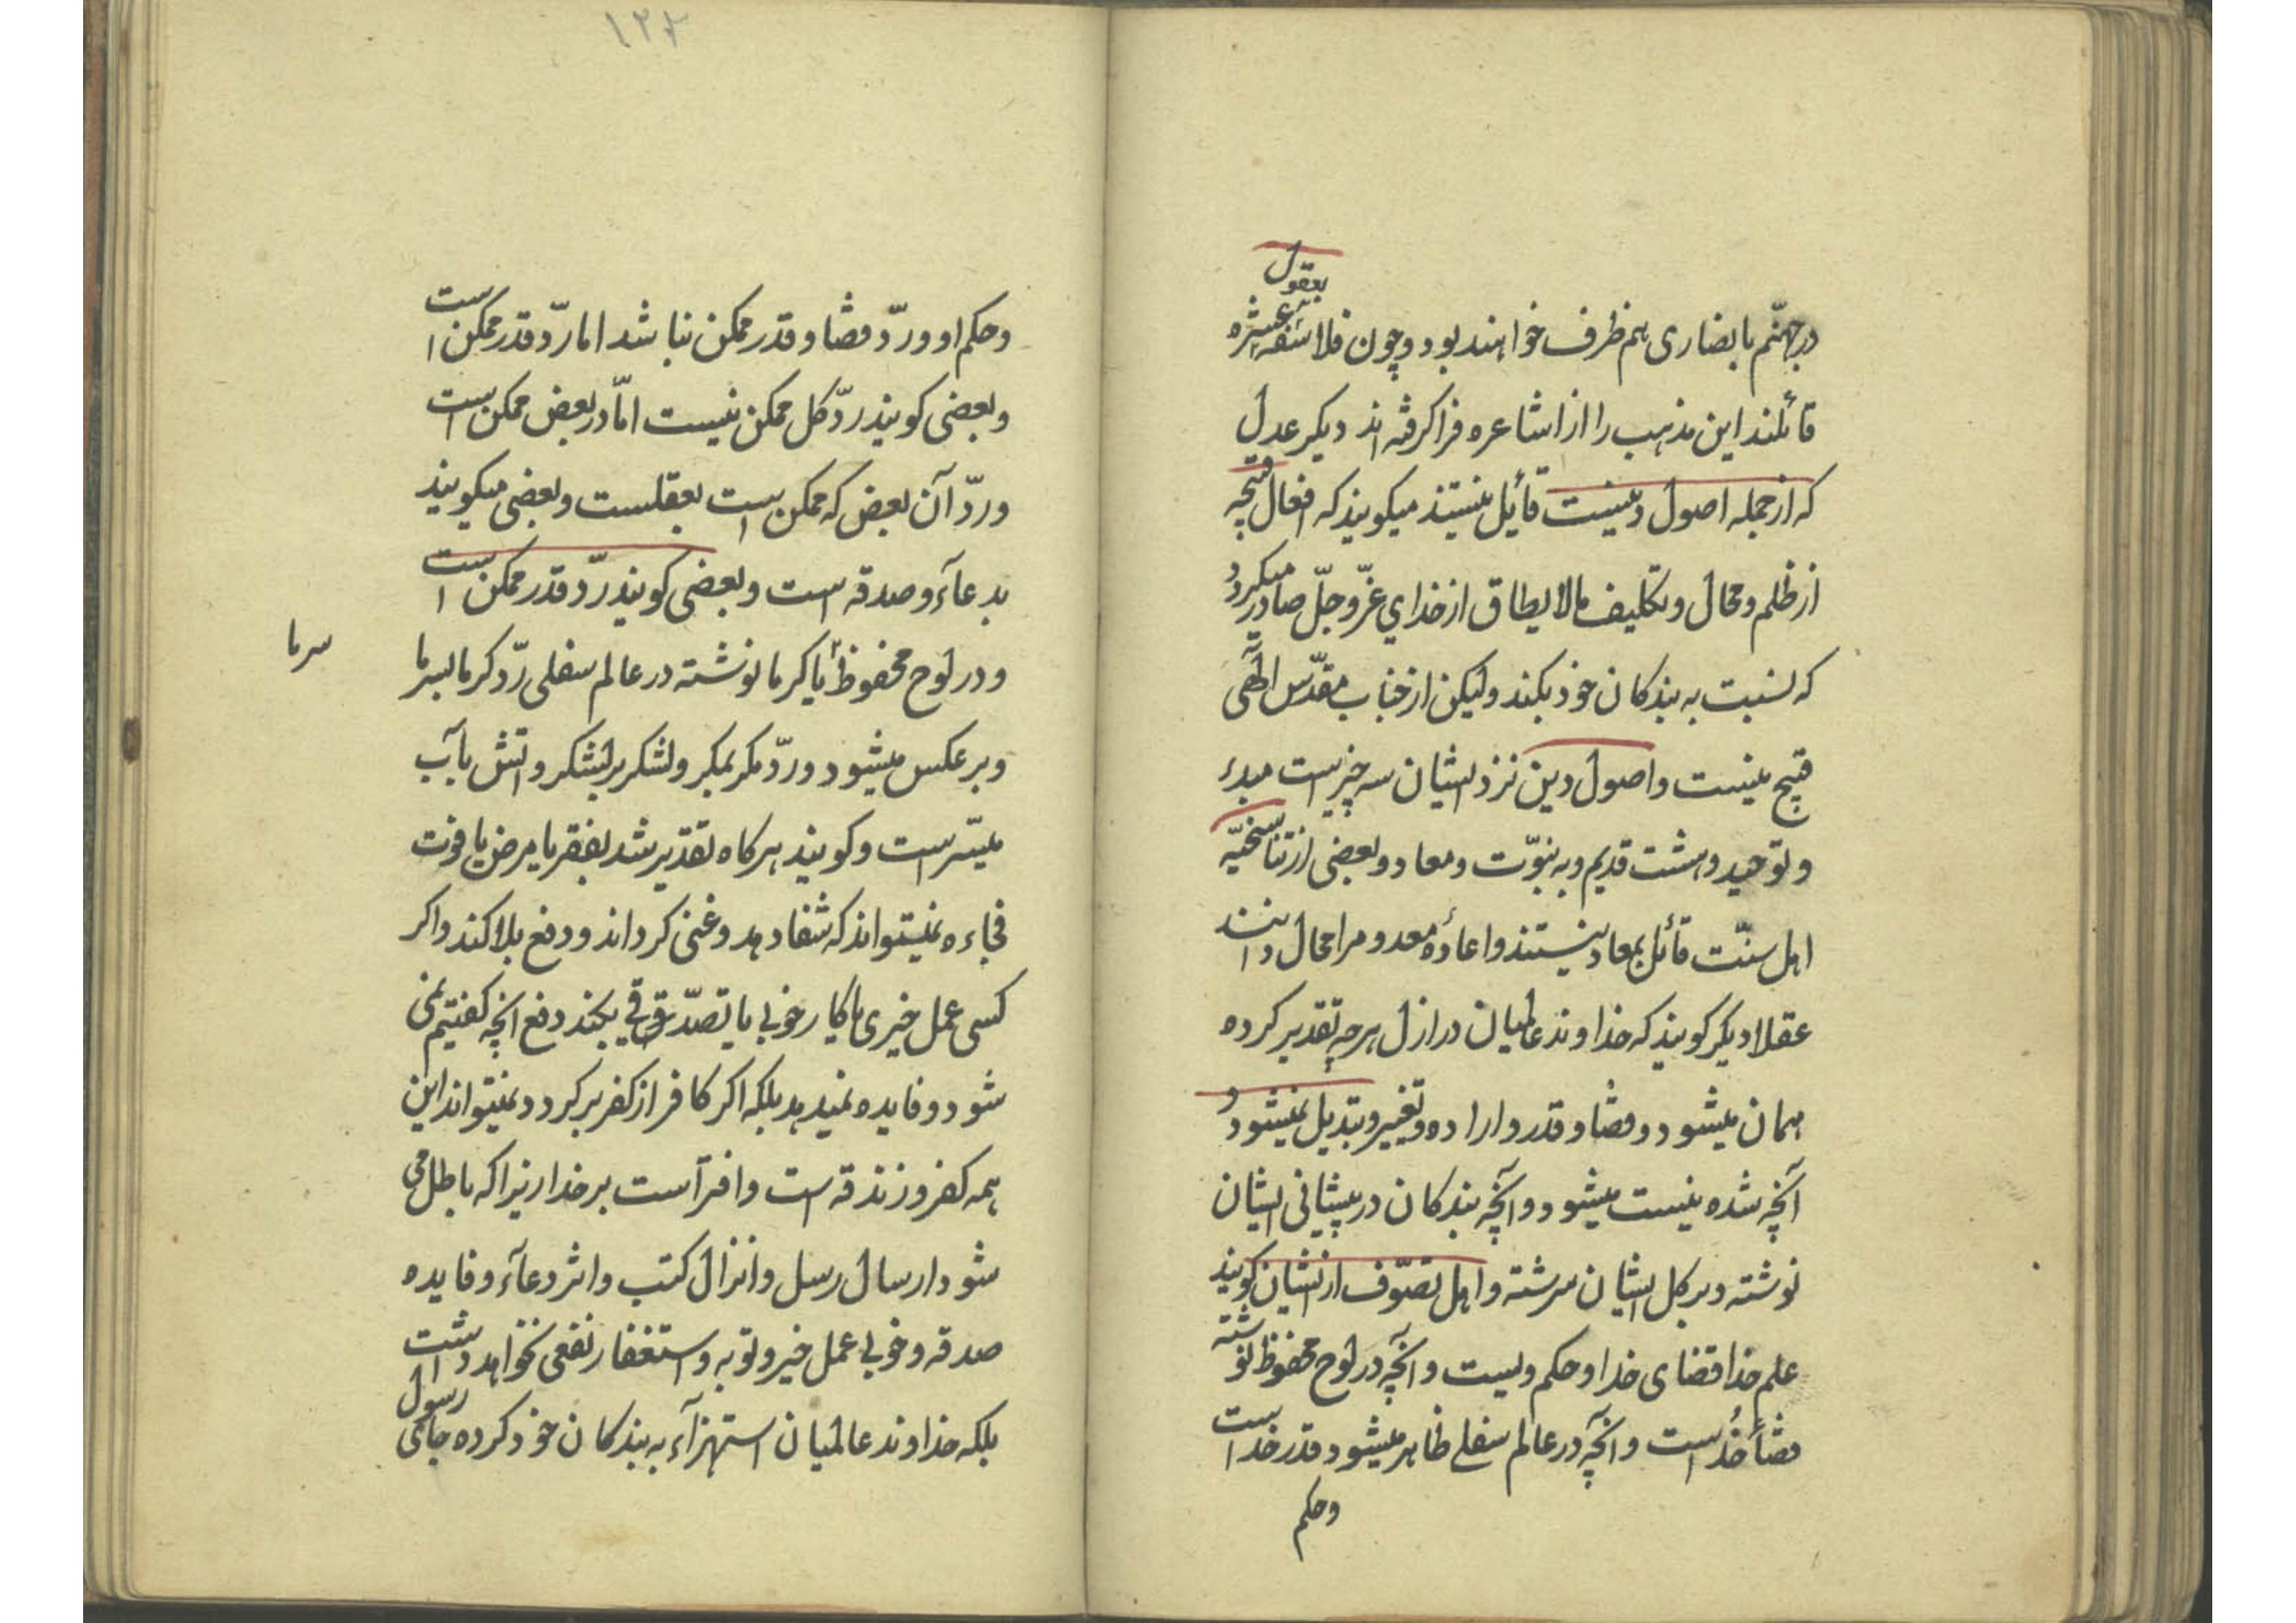 در جهنّم با نصاری هم ظرف خواهند بود و چون فلاسفه بعقول عشره
قائلند این مذهب را از اشاعره فرا گرفته اند دیکر عدل
که از جمله اصول دینست قائل نیستند میکویند که افعال قبیحه
از ظلم و محال و تکلیف مالایطاق از خدای عزّ و جلّ صادر میکردد
که نسبت به بندکان خود بکند ولیکن از جناب مقدّس الهی
قبیح نیست و اصول دین نزد ایشان سه چیز است مبدء
و توحید و هشت قدیم و به نبوّت و معاد و بعضی از تناسخیّه
اهل سنّت قائل بمعاد نیستند و اعادهٔ معدوم را محال دانند
عقلا دیکر کویند که خداوند عالمیان در ازل هرچه تقدیر کرده
همان میشود و قضا و قدر و اراده و تغییر و تبدیل نمیشود و
آنچه شده نیست میشود و آنچه بندکان در پیشانی ایشان
نوشته و بر کل ایشان سرشته و اهل تصوّف از ایشان کویند
علم خدا قضای خدا و حکم ویست و آنچه در لوح محفوظ نوشته
قضاء خداست و آنچه در عالم سفلی ظاهر میشود قدر خداست
و حکم
۱۳۲
و حکم او و ردّ قضا و قدر ممکن نباشد اما ردّ قدر ممکن است
و بعضی کویند ردّ کل ممکن نیست امّا در بعض ممکن است
و ردّ آن بعض که ممکن است بعقلست و بعضی میکویند
بدعآء و صدقه است و بعضی کویند ردّ قدر ممکن است
و در لوح محفوظ یا کرما نوشته در عالم سفلی ردّ کرما بسرما
سرما
و بر عکس میشود و ردّ مکر بمکر و لشکر بر لشکر و اتش بآب
میسّر است و کویند هرکاه تقدیر شد بفقر یا مرض یا فوت
فجاءه نمیتواند که شفا دهد و غنی کرداند و دفع بلا کند و اکر
کسی عمل خیری یا کار خوبی یا تصدّقی بکند دفع انچه کفتیم نمی
شود و فایده نمیدهد بلکه اکر کافر از کفر برکردد نمیتواند این
همه کفر و زندقه است و افترآست بر خدا زیرا که باطل می
شود ارسال رسل و انزال کتب و اثر دعآء و فایده
صدقه و خوبی عمل خیر و توبه و استغفار نفعی نخواهد داشت
بلکه خداوند عالمیان استهزآء به بندکان خود کرده جای رسول